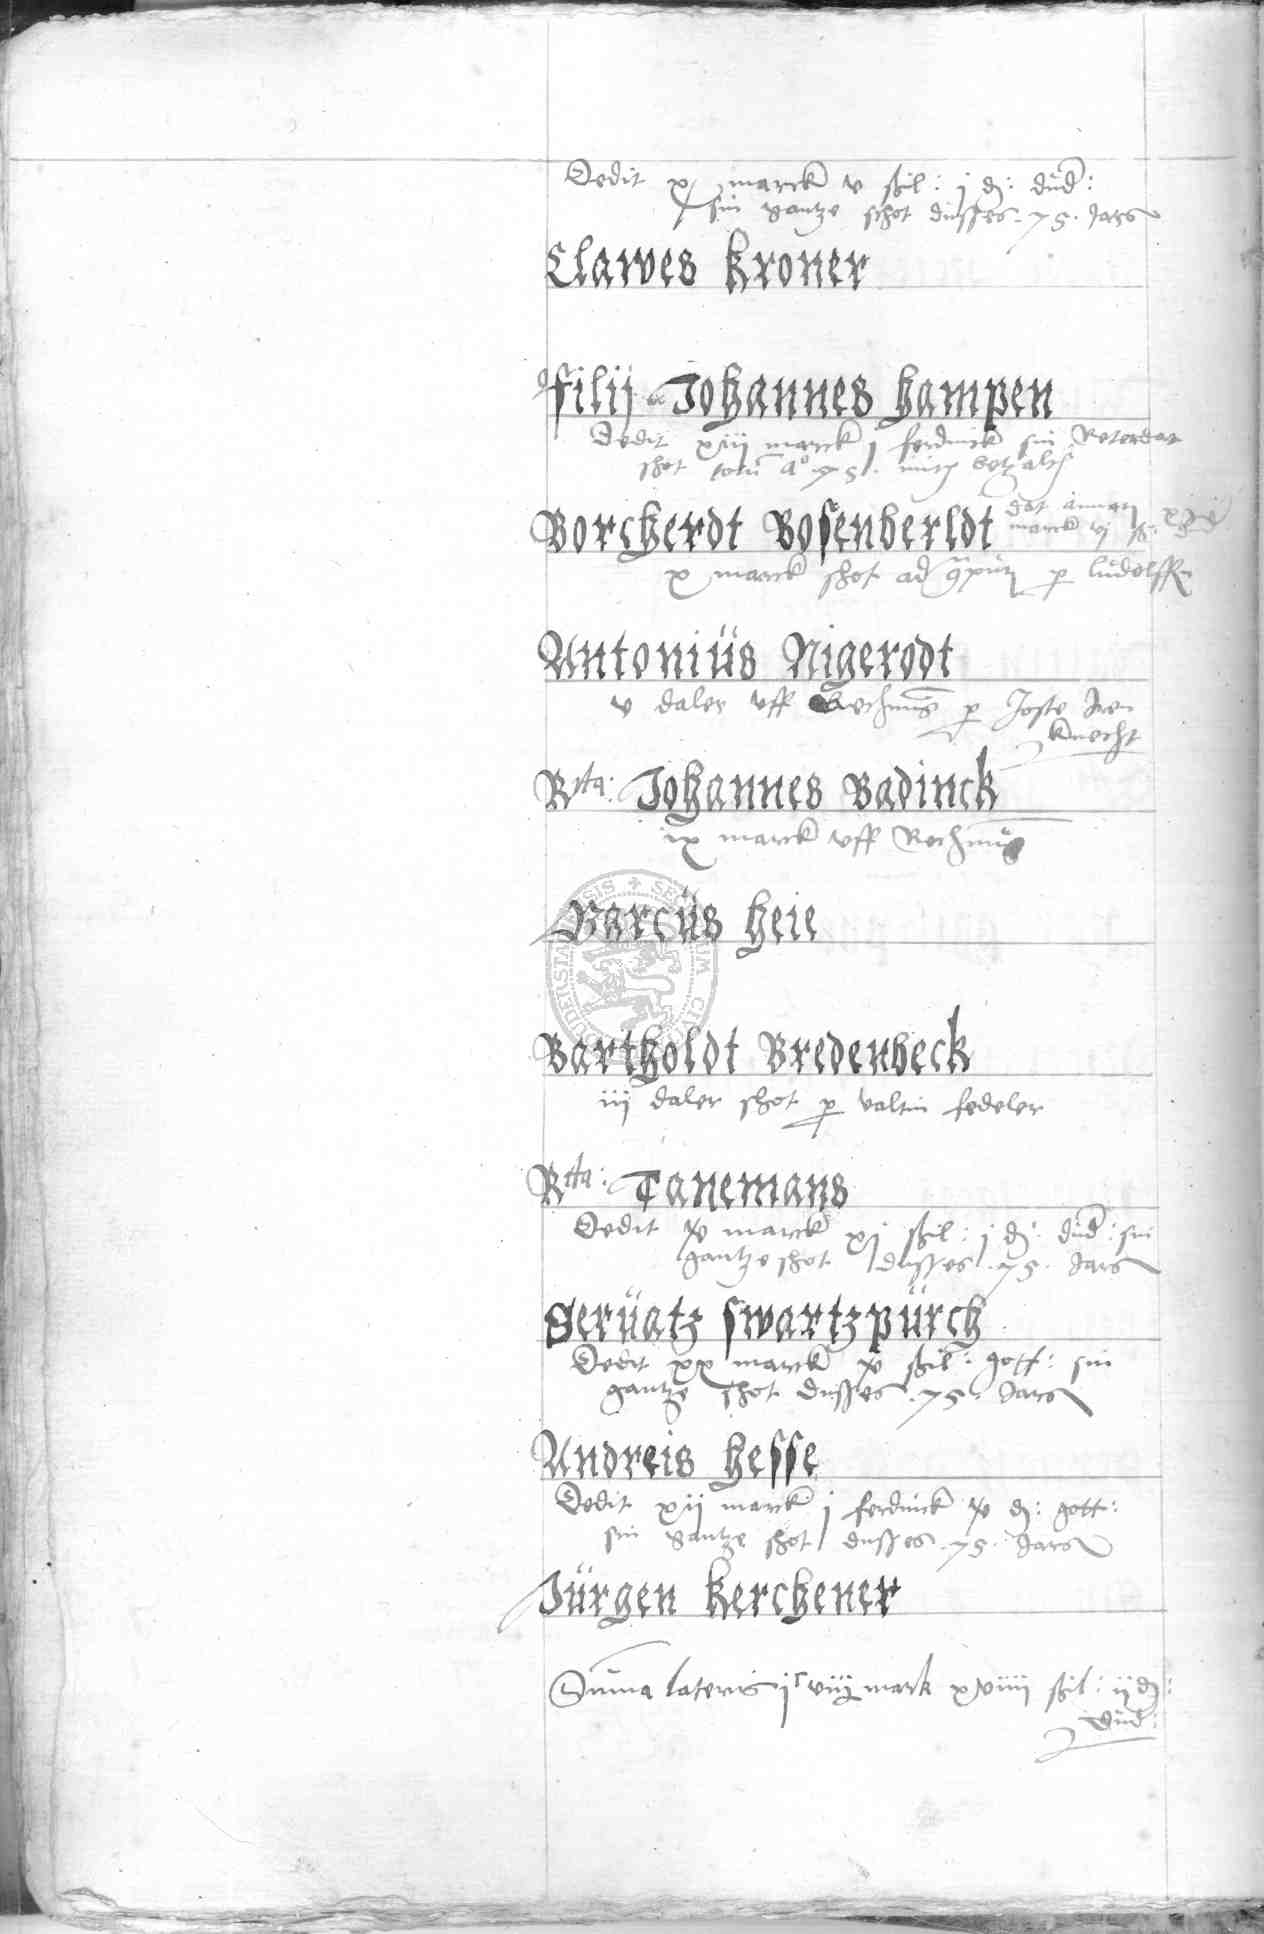 Dedit x marck v ßil: j d: dud:
sin gantze schot dusses .75. Jars
Clawes Kroner
filij Johannes Hampen
Dedit xiij marck j ferdinck sin
shot totu ao .75. betzalth
Borcherdt Bosenberldt dat
marck vj ß:
x marck shot ad p ludolff
Antonius Nigerodt
v daler vff Rechnung p Joste
Knecht
Rcta: Johannes Badinck
ix marck vff Rechnung
Barcus Heie
SECR CIVI DUDERSTA
Bartholdt Bredenbeck
iij daler shot p valtin fedeler
Rcta: Tanemans
Dedit xv marck xj ßil: j d: dud: sin
gantze shot dusses .75. Jars
Seruatz Swartzpurch
Dedit xx marck xv ßil: gott: sin
gantze shot dusses .75. Jars
Andreis Hesse
Dedit xij marck j ferdinck xv d: gott:
sin gantze shot dusses .75. Jars
Jürgen Kerchener
Suma lateris jc viij mark xviiij ßil: ij d:
dud: